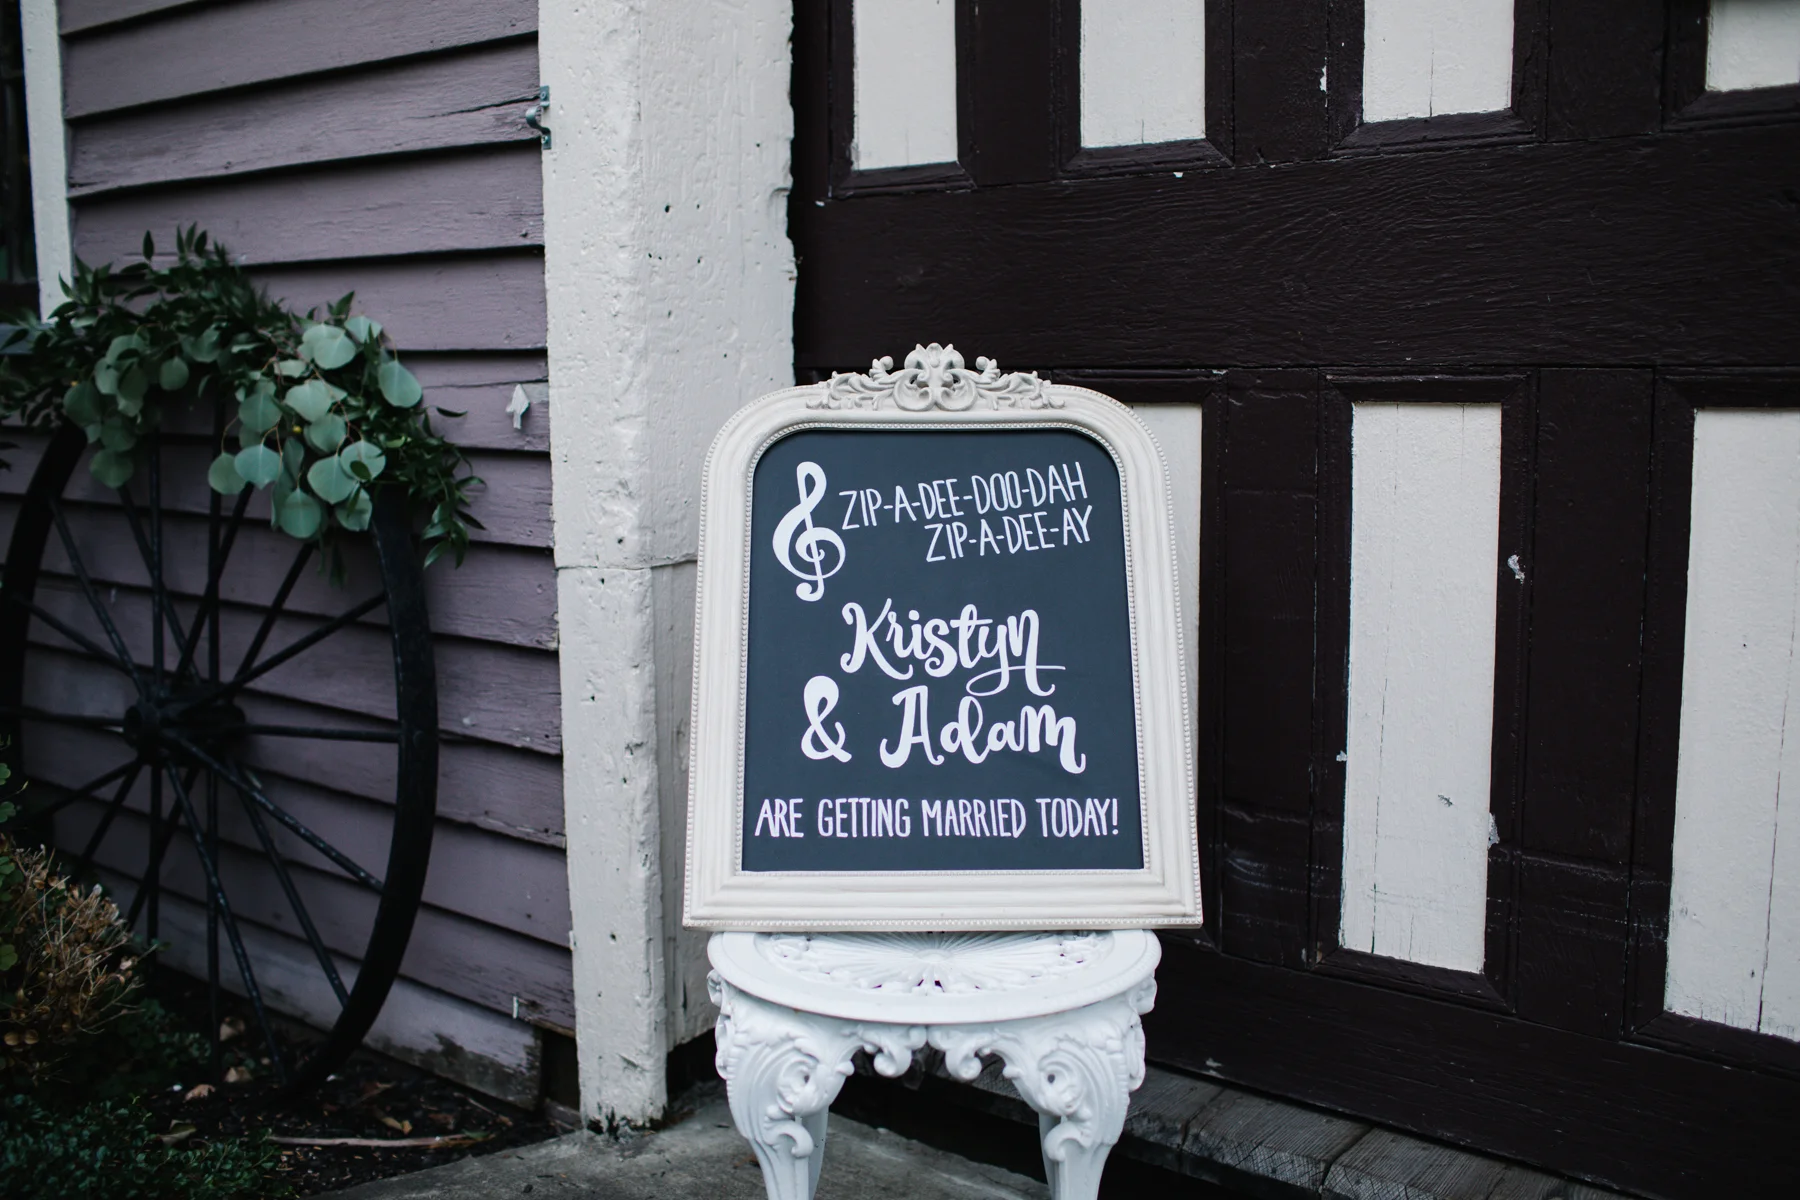 ZIP-A-DEE-DOO-DAH
ZIP-A-DEE-AY
Kristyn
& Adam
ARE GETTING MARRIED TODAY!